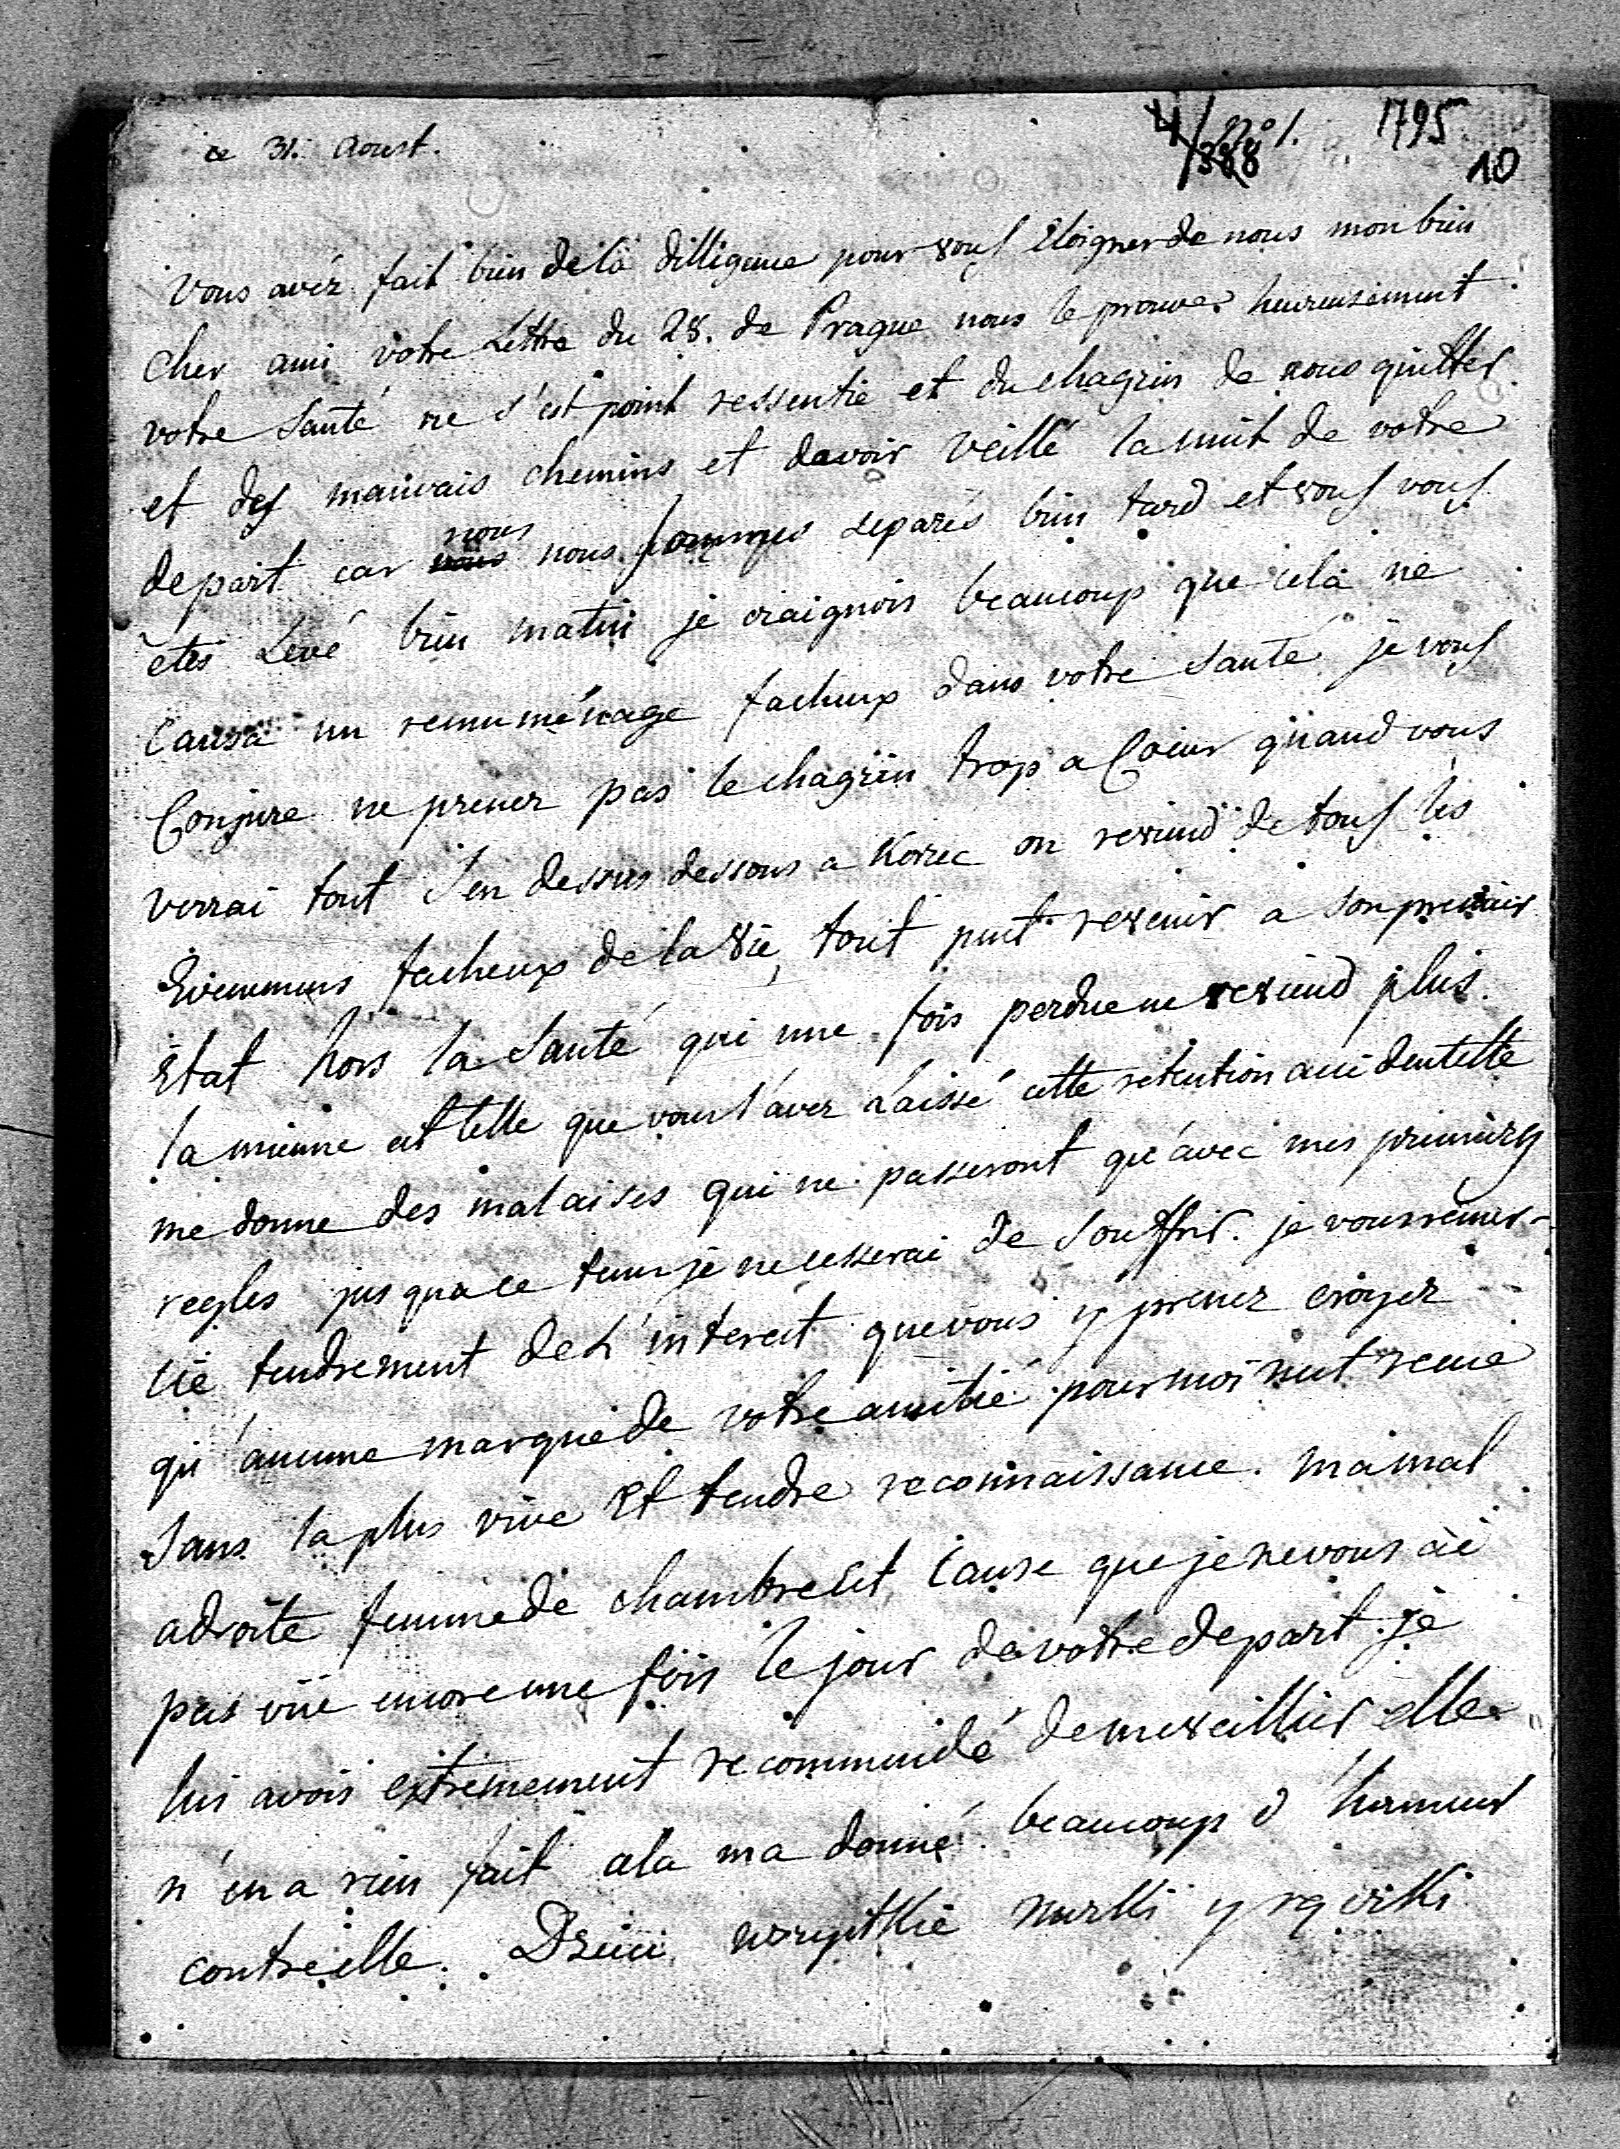 ce 31. Aoust.
N° 1. 1795
4/388
10
Vous avéz fait bien de la dilligence pour vous Eloigner de nous mon bien
cher ami votre Lettre du 28. de Prague nous le prouve. heureusement
votre Santé ne s'est point ressentie et du chagrin de nous quitter
et des mauvais chemins et davoir veillé la nuit de votre
depart car vous nous nous sommes separés bien tard et vous vous
étes Levé bien matin je craignois beaucoup que cela ne
Causa un remuménage facheux dans votre Santé. je vous
Conjure ne prener pas le chagrin trop a Coeur quand vous
verrai tout s'en dessus dessous a Korzec on reviend de tous les
Evenemens facheux de la vie, tout peut revenir a son premier
Etat hors la Santé qui une fois perdue ne reviend plus.
la mienne est telle que vous l'avez Laissé cette retention accidentelle
me donne des malaises qui ne passeront qu'avec mes premieres
regles jusqua ce tems je ne cesserai de Souffrir. je vous remer-
cie tendrement de L'interest que vous y prenez croyez
qu'aucune marque de votre amitié pour moi n'est recue
Sans la plus vive Et tendre reconnaissance. ma mal
adroite femme de chambre Est Cause que je ne vous ai
pas vüe encore une fois le jour de votre depart. je
lui avois extrêmement recommendé de meveillier elle
n'en a rien fait cela ma donné beaucoup d'humeur
contre elle. Dzieci wszystkie